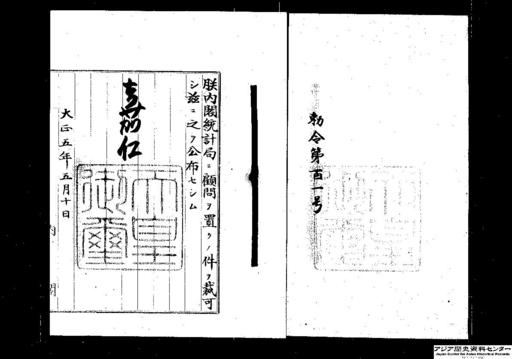 勅令第百一号
朕内閣統計局ニ顧問ヲ置クノ件ヲ裁可
シ茲ニ之ヲ公布セシム
嘉仁
天皇
御璽
大正五年五月十日
内閣
アジア歴史資料センター
Japan Center for Asian Historical Records